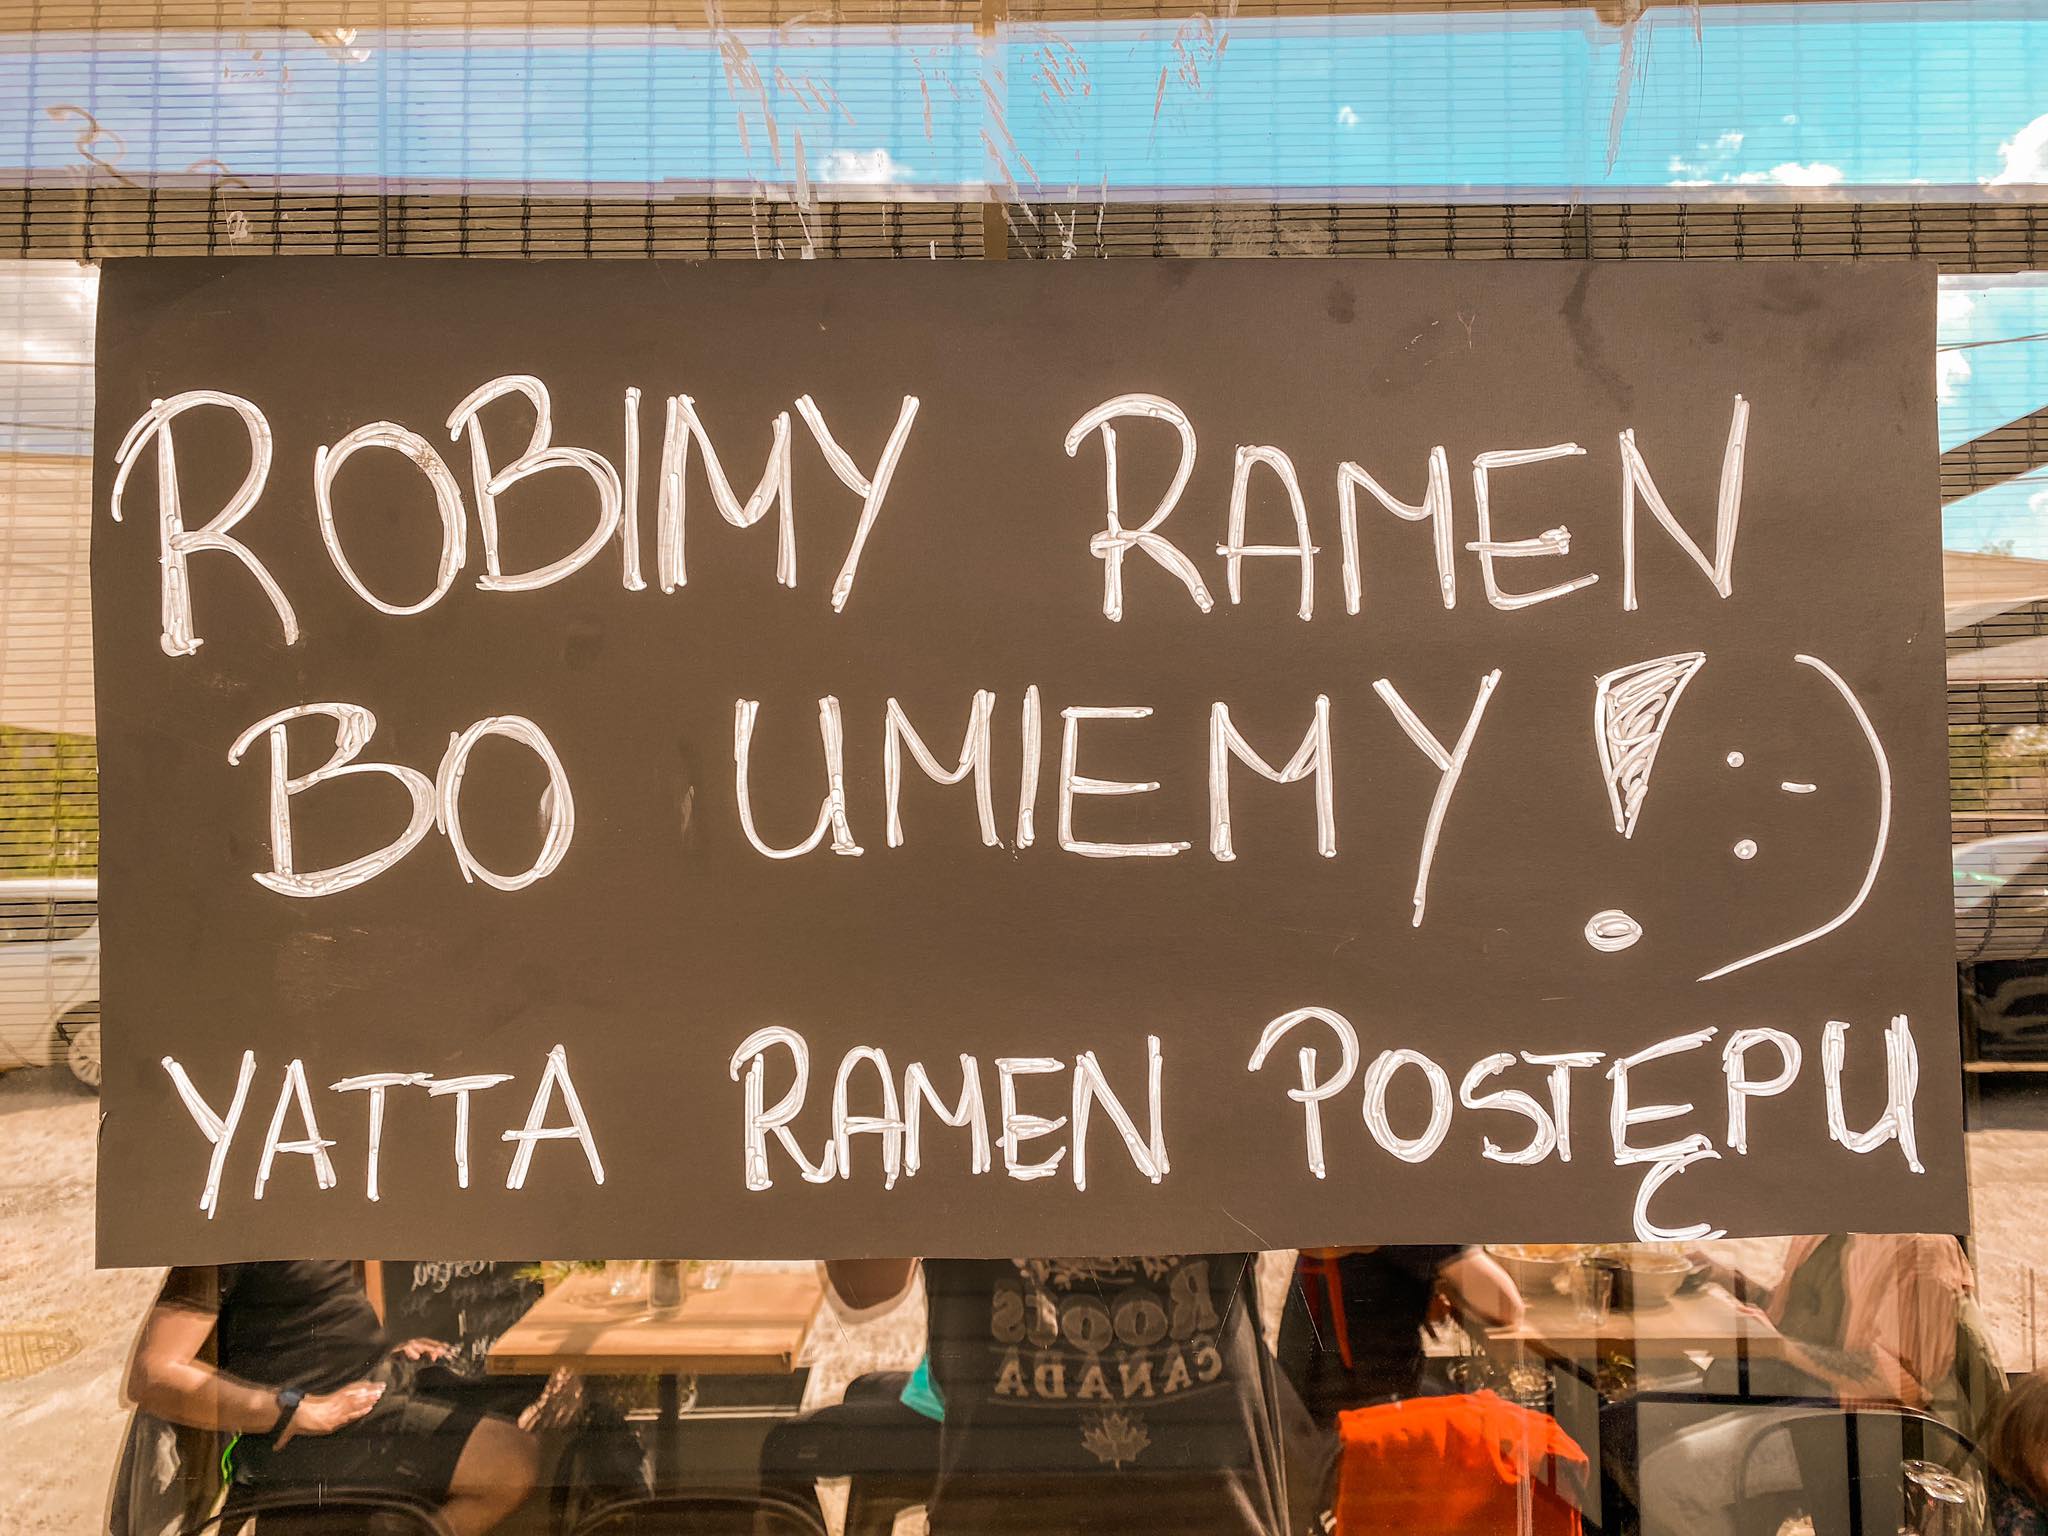 ROBIMY RAMEN
BO UMIEMY! :-)
YATTA RAMEN POSTĘPU
ROOTS
CANADA